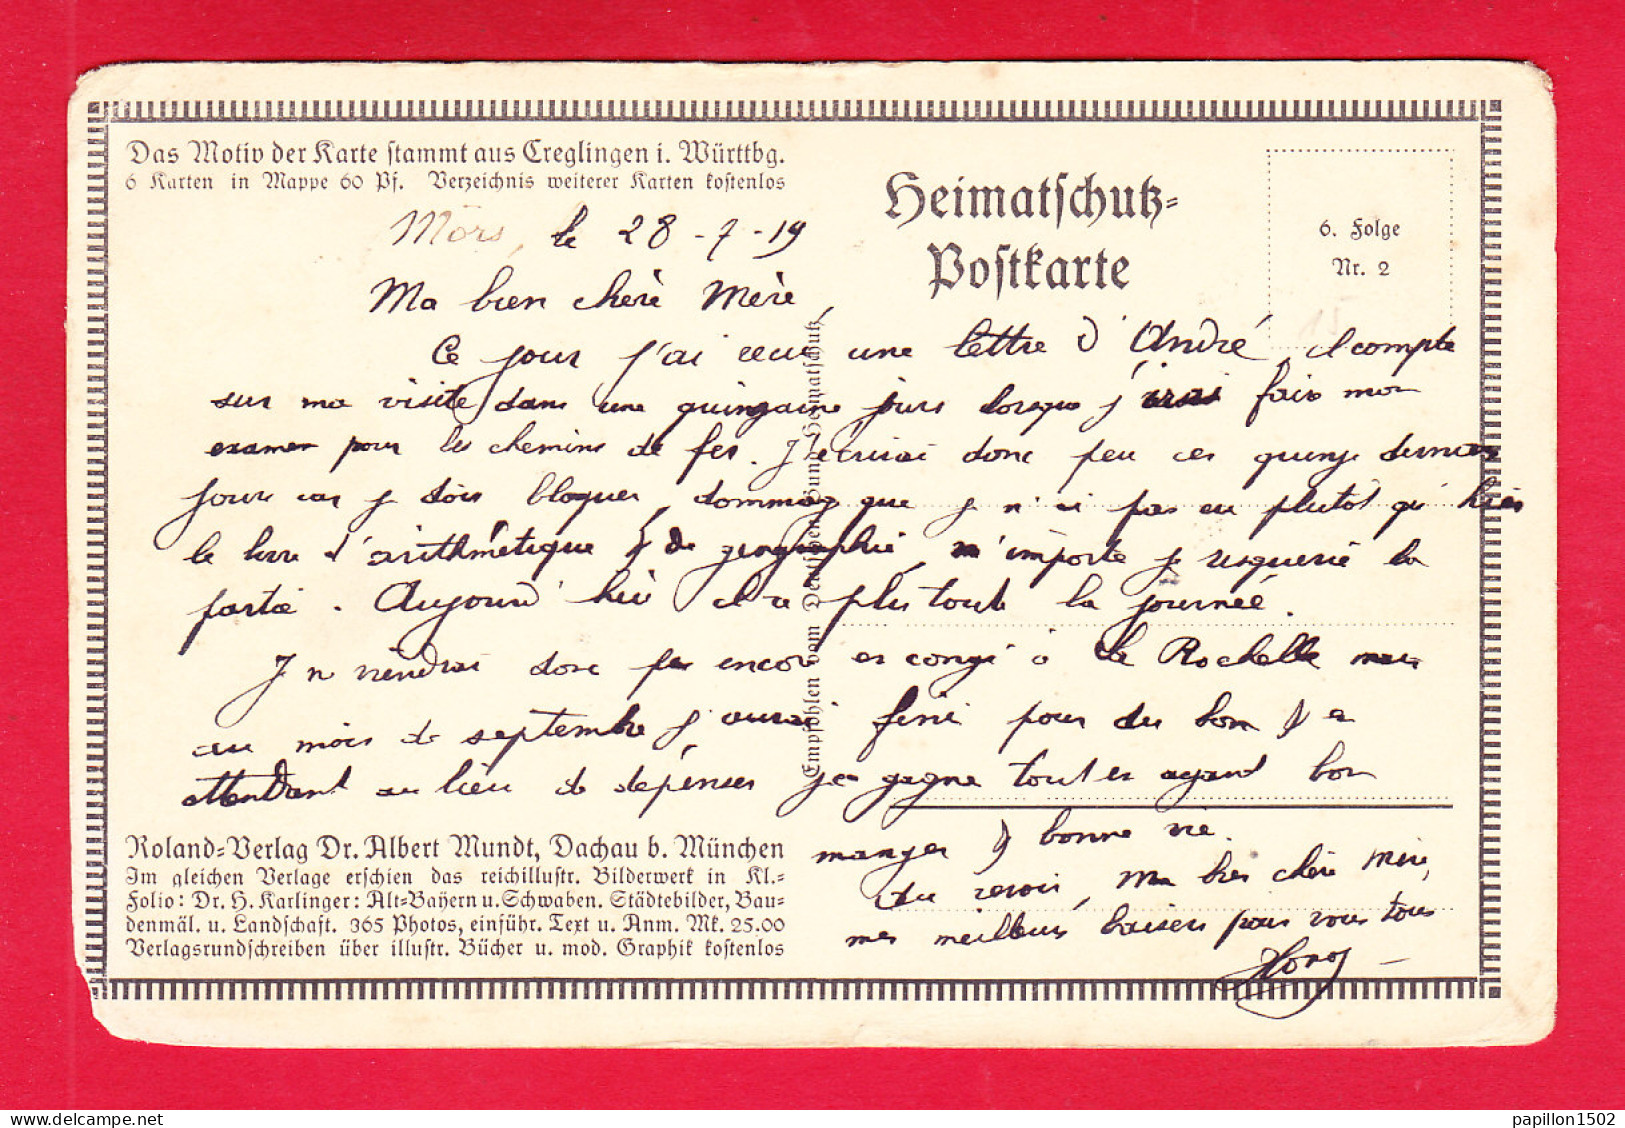 Das Motiv der Karte stammt aus Creglingen i. Württbg.
6 Karten in Mappe 60 Pf. Verzeichnis weiterer Karten kostenlos
Heimatschutz-
Postkarte
6. Folge
Nr. 2
Mörs, le 28-7-19
Ma bien chère Mère,
Ce jour j'ai recu une lettre d'André, il compte
sur ma visite dans une quinzaine jours lorsque j'irai faire mon
examen pour les chemins de fer. J'écrirai donc peu ces quinze derniers
jours car je dois bloquer, dommage que je n'ai pas eu plutôt qu'hier
le livre d'arithmétique & de geographie, n'importe je risquerai la
partie. Aujourd'hui il a plut toute la journée.
Je n viendrai donc pas encore en congé à La Rochelle mais
au mois de septembre j'aurai fini pour du bon & en
attendant au lieu de dépenser je gagne tout en ayant bon
manger & bonne vie.
au revoir, Ma bien chère Mère,
mes meilleurs baisers pour vous tous
Empfohlen vom Deutschen Bund Heimatschutz
Roland-Verlag Dr. Albert Mundt, Dachau b. München
Im gleichen Verlage erschien das reichillustr. Bilderwerk in Kl.-
Folio: Dr. H. Karlinger: Alt-Bayern u. Schwaben. Städtebilder, Bau-
denmäl. u. Landschaft. 365 Photos, einführ. Text u. Anm. Mk. 25.00
Verlagsrundschreiben über illustr. Bücher u. mod. Graphik kostenlos
delcampe.net
papillon1502